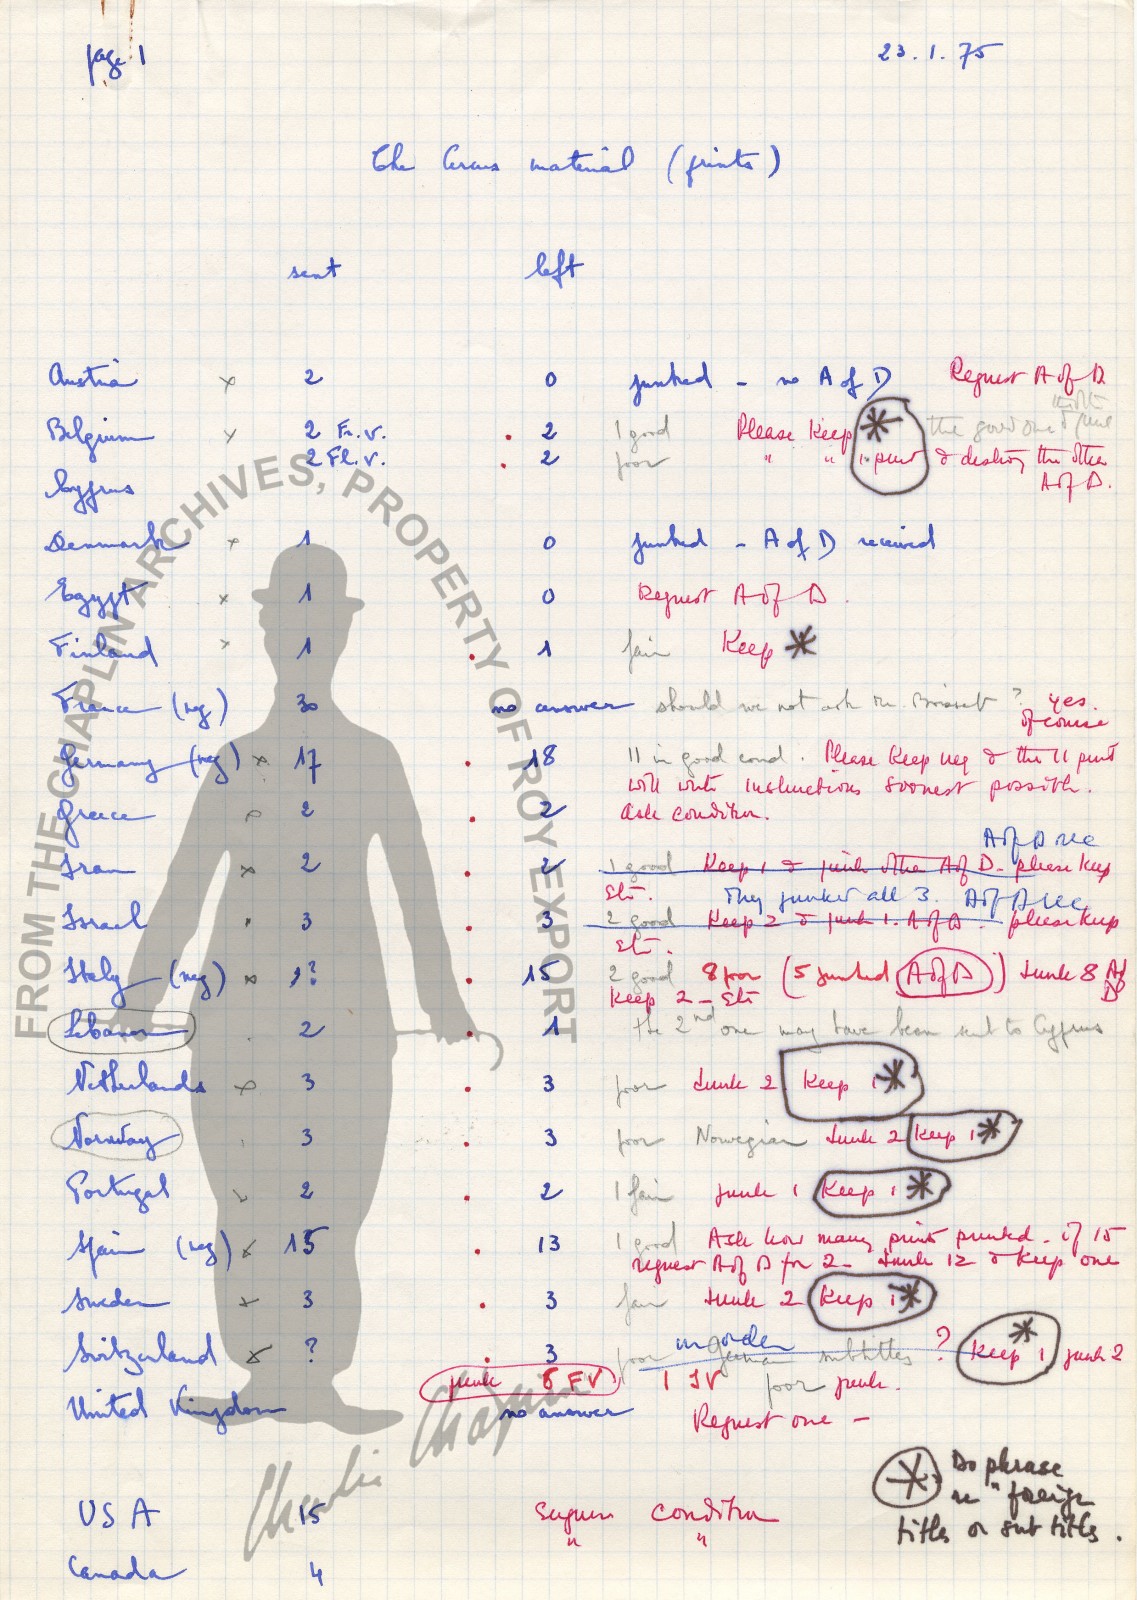 page 1
23.1.75
The Circus material (prints)
sent left
Austria x 2 0 junked - no A of D Request A of D
Belgium x 2 Fr. v. . 2 1 good Please Keep * the good one & junk
2 Fl. v. . 2 poor " " 1 print & destroy the other
A of D.
Cyprus
Denmark x 1 0 junked - A of D received
Egypt x 1 0 Request A of D.
Finland x 1 . 1 fair Keep *
France (neg) 30 no answer should we not ask Mr Boisset? yes.
of course
Germany (neg) x 17 . 18 11 in good cond. Please Keep neg & the 11 print
will write instructions soonest possible.
Greece 2 . 2 ask condition.
A of D rec
Iran x 2 . 2 1 good Keep 1 & junk other A of D - please keep
They junked all 3. A of D rec
Israel x 3 . 3 2 good Keep 2 & junk 1. A of D. please keep
Italy (neg) x 1? . 15 2 good 8 poor (5 junked A of D) Junk 8 A of D
Keep 2 -
Lebanon . 2 . 1 the 2nd one may have been sent to Cyprus
Netherlands 3 . 3 poor Junk 2 Keep 1 *
Norway 3 . 3 poor Norwegian Junk 2 Keep 1 *
Portugal 2 . 2 1 fair junk 1 Keep 1 *
Spain (neg) x 15 . 13 1 good Ask how many prints junked. if 15
request A of D for 2 - Junk 12 & Keep one
Sweden x 3 . 3 fair Junk 2 Keep 1 *
in order
Switzerland x ? . 3 poor German subtitles ? Keep 1 * junk 2
junk 8 FV, 1 IV poor junk.
United Kingdom no answer Request one -
USA 15 condition
" "
Canada 4
* Do phrase
re "foreign
titles or sub titles.
FROM THE CHAPLIN ARCHIVES, PROPERTY OF ROY EXPORT
Charlie Chaplin